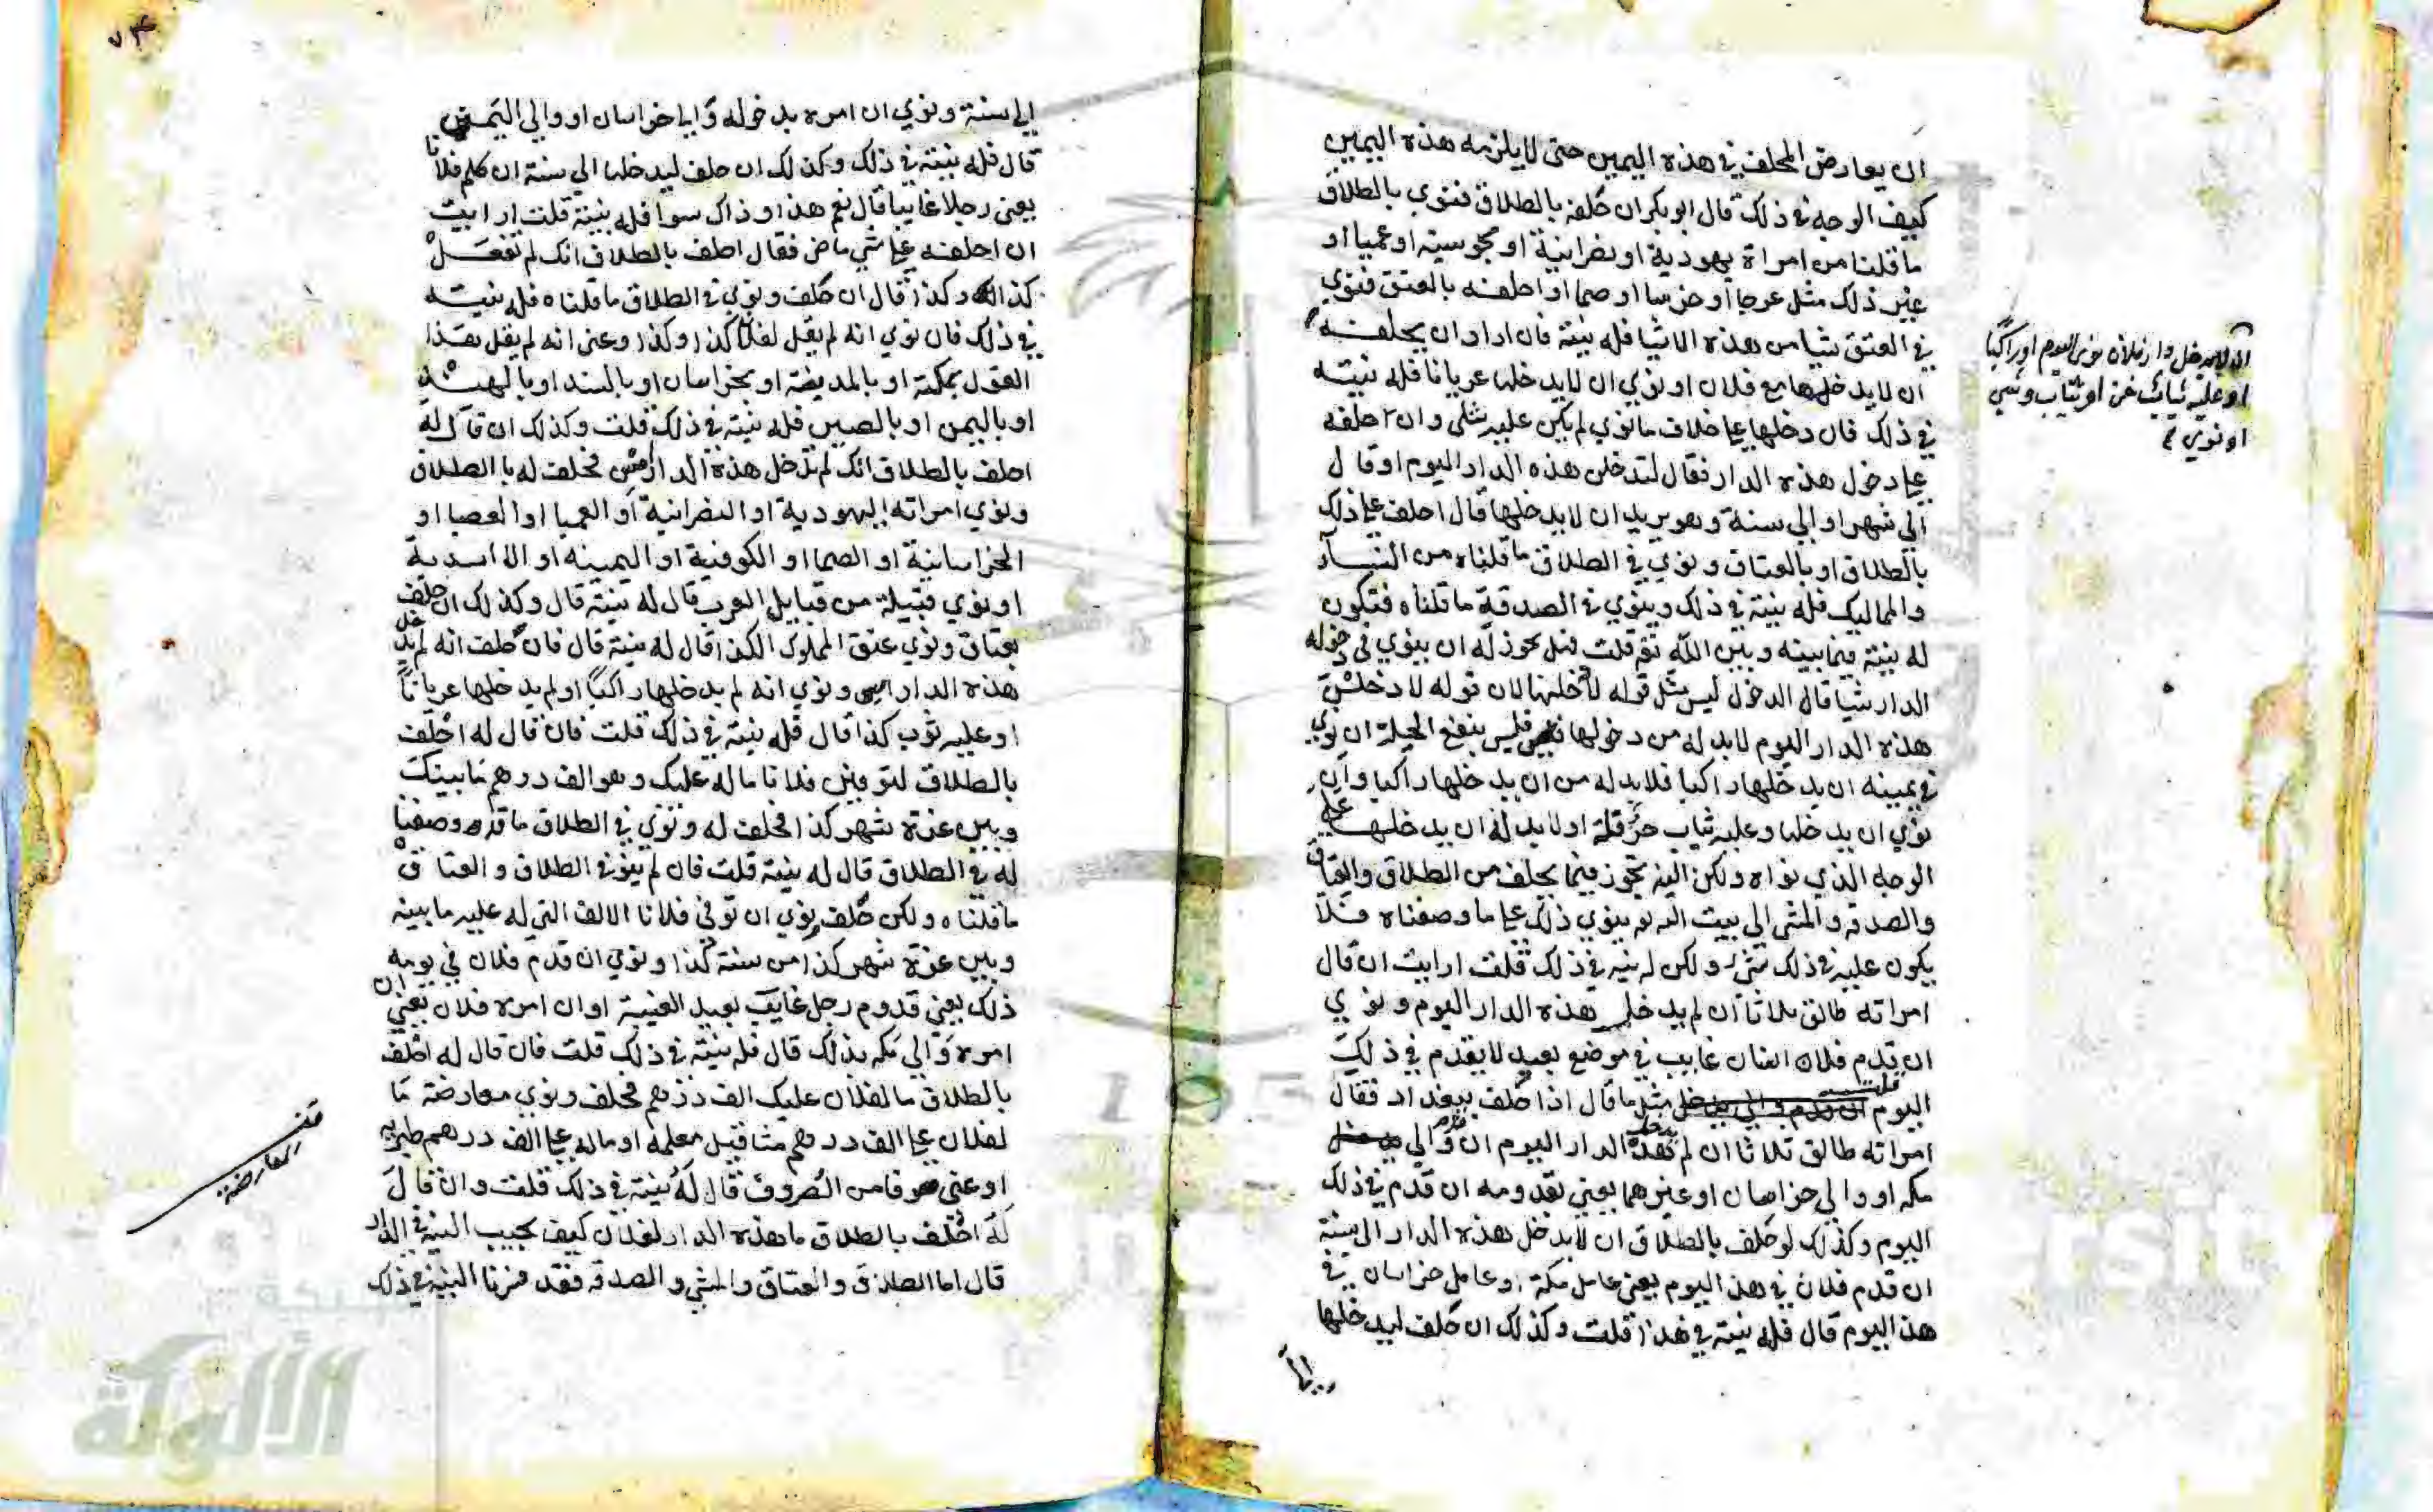 ان يعارض المحلف في هذه اليمين حتى لا يلزمه هذه اليمين
كيف الوجه في ذلك قال ابو بكر ان حلفه بالطلاق فنوي بالطلاق
ما قلنا من امراة يهودية او نصرانية او مجوسية او عميا او
غير ذلك مثل عرجا او خرسا او صما او احلفه بالعتق فنوي
في العتق شيا من هذه الاشيا فله نيته فان اراد ان يحلفه
ان لا يدخلها مع فلان او نوي ان لا يدخلها عريانا فله نيته
في ذلك فان دخلها على خلاف ما نوي لم يكن عليه شي وان احلفه
على دخول هذه الدار فقال لتدخلن هذه الدار اليوم او قال
الى شهر او الي سنة وهو يريد ان لا يدخلها قال احلف على ذلك
بالطلاق او بالعتاق ونوي في الطلاق ما قلناه من النساء
والمماليك فله نيته في ذلك وينوي في الصدقة ما قلناه فتكون
له نيته فيما بينه وبين الله تع قلت فهل يجوز له ان ينوي في دخوله
الدار شيا قال الدخول ليس مثل قوله لا دخلنها لان قوله لادخلن
هذه الدار اليوم لابد له من دخولها فليس ينفع الحيلة ان نوي
في يمينه ان يدخلها راكبا فلابد له من ان يدخلها راكبا وان
نوي ان يدخلها وعليه ثياب اولا بد له ان يدخلها على
الوجه الذي نواه ولكن النية تجوز فيما يحلف من الطلاق والعتاق
والصدقة والمشى الي بيت الله لو ينوي ذلك على ما وصفناه فلا
يكون عليه في ذلك شيء ولكن له نيته في ذلك قلت ارايت ان قال
امراته طالق ثلاثا ان لم يدخل هذه الدار اليوم ونوي
ان قدم فلان انسان غايب في موضع بعيد لا يقدم في ذلك
اليوم قلت مثل ما قال اذا حلف ببغداد فقال
امراته طالق ثلاثا ان لم يدخل هذه الدار اليوم ان قدم والي
مكه او والي خراسان او غيرهما يعني بقدومه ان قدم في ذلك
اليوم وكذلك لو حلف بالطلاق ان لا يدخل هذه الدار الى سنة
ان قدم فلان في هذ اليوم يعني عامل مكة او عامل خراسان في
هذ اليوم قال فله نيته في هذا قلت وكذلك ان حلف ليدخلها
ان لا يدخل دار فلان نوى اليوم او راكبا
او عليه ثياب خز او ثياب وشي
او نوي
الى سنة ونوي ان امره بدخوله والي خراسان او والي اليمن
قال فله نيته في ذلك وكذلك ان حلف ليدخلها الي سنة ان كلم فلانا
يعني رجلا غايبا قال نعم هذا وذاك سوا فله نيته قلت ارايت
ان احلفه على شي ماض فقال احلف بالطلاق انك لم تفعل
كذا وكذا قال ان حلف ونوي في الطلاق ما قلناه فله نيته
في ذلك فان نوي انه لم يقل لفلان كذا وكذا وعنى انه لم يقل هذا
القول بمكة او بالمدينة او بخراسان او بالسند او بالهند
او باليمن او بالصين فله نيته في ذلك قلت وكذلك ان قال له
احلف بالطلاق انك لم تدخل هذه الدار امس فحلف له بالطلاق
ونوي امراته اليهودية او النصرانية او العميا او العصبا او
الخراسانية او الصما او الكوفية او اليمينه او الاسدية
او نوي قبيلة من قبايل العرب قال له نيته قال وكذلك ان حلف
بعتاق ونوي عتق المملوك الكذا قال له نيته قال فان حلف انه لم يدخل
هذه الدار امس ونوي انه لم يدخلها راكبا او لم يدخلها عريانا
او عليه ثوب كذا قال فله نيته في ذلك قلت فان قال له احلف
بالطلاق لتوفين فلانا ماله عليك وهو الف درهم ما بينك
وبين غرة شهر كذا فحلف له ونوي في الطلاق ما قد وصفنا
له في الطلاق قال له نيته قلت فان لم ينو في الطلاق والعتاق
ما قلناه ولكن حلف ونوي ان توفى فلانا الالف التي له عليه ما بينه
وبين غرة شهر كذا من سنة كذا ونوي ان قدم فلان في يومه
ذلك يعني قدوم رجل غايب بعيد الغيبة او ان امره فلان يعني ان
امره والي مكه بذلك قال فله نيته في ذلك قلت فان قال له احلف
بالطلاق ما لفلان عليك الف درهم فحلف ونوي معارضة ما
لفلان على الف درهم مثاقيل معلمه او ماله على الف درهم طبريه
او عنى صرفا من الصروف قال له نيته في ذلك قلت وان قال
له احلف بالطلاق ما هذه الدار لفلان كيف يجيب النية في الدار
قال اما الطلاق والعتاق والمشي والصدقه فقد النية في ذلك
قف
المعارضة
شبكة
الألوكة